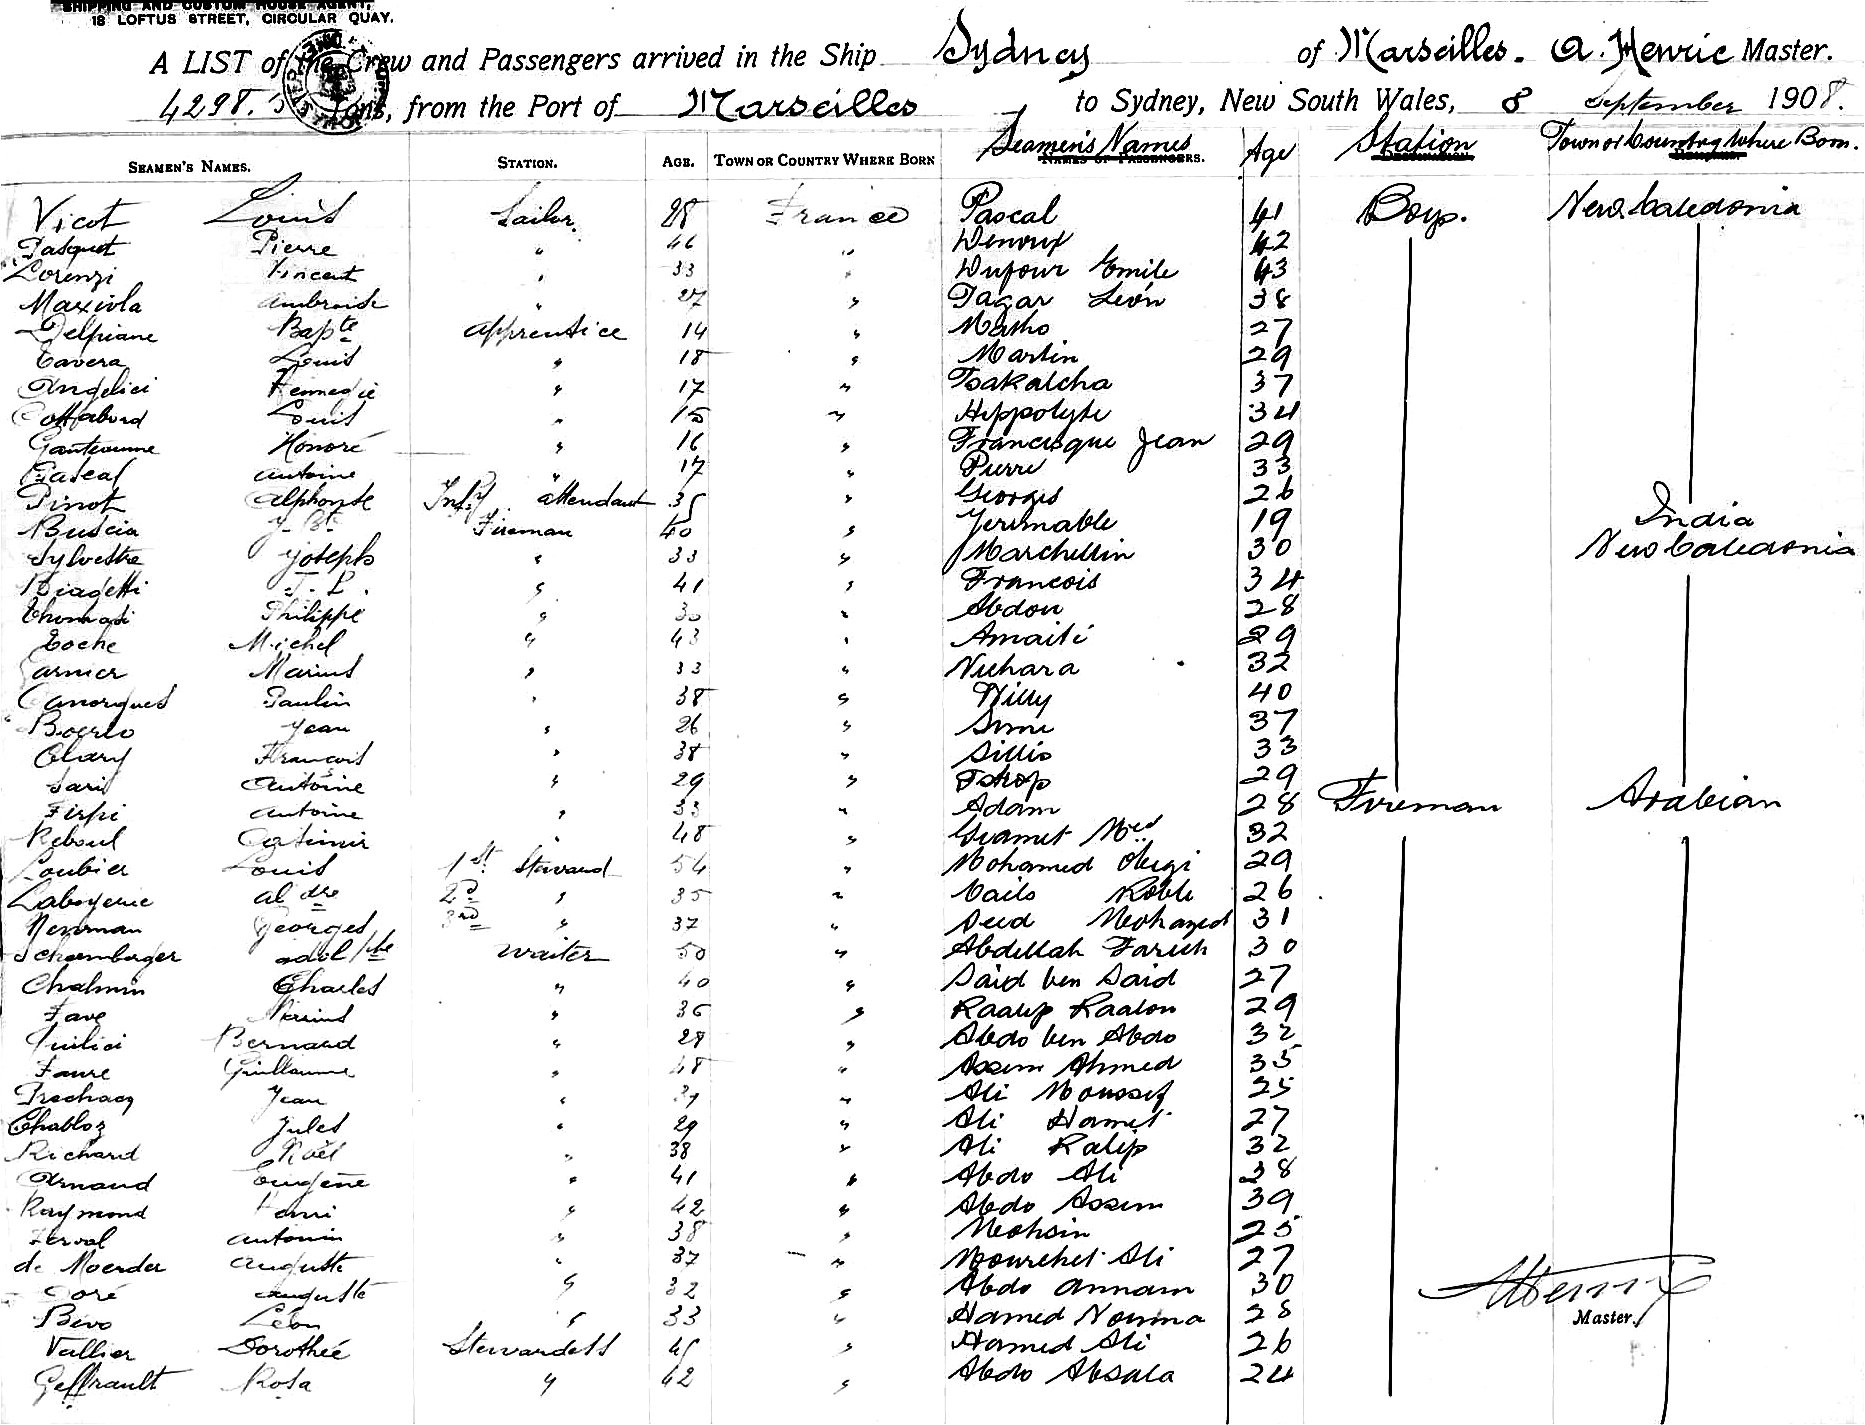 SHIPPING AND CUSTOM HOUSE AGENT,
18 LOFTUS STREET, CIRCULAR QUAY.
A LIST of the Crew and Passengers arrived in the Ship Sydney of Marseilles. A. Henric Master.
4298.5 Tons, from the Port of Marseilles to Sydney, New South Wales, 8 September 1908.
SEAMEN'S NAMES. STATION. AGE. TOWN OR COUNTRY WHERE BORN Seamen's Names Age Station Town or Country Where Born.
Vicot Louis Sailor 28 France Pascal 41 Boys. New Caledonia
Pasquet Pierre " 46 " Denoux 42
Lorenzi Vincent " 33 " Dufour Emile 43
Maxiola Ambroise " 27 " Tagar Léon 38
Delpiane Bapte Apprentice 14 " Matho 27
Tavera Louis " 18 " Martin 29
Angelici " 17 " Tsakatcha 37
Cottabord Louis " 15 " Hippolyte 34
Ganteaume Honoré " 16 " Francisque Jean 29
Pascal Antoine " 17 " Pierre 33
Pinot Alphonse Infy attendant 35 " Georges 26
Buscia J. Bte Fireman 40 " Jerimable 19 India
Sylvestre Joseph " 33 " Marchellin 30 New Caledonia
Biagetti J. P. " 41 " Francois 34
Thomasi Philippe " 30 " Abdon 28
Loche Michel " 43 " Amaiti 29
Garnier Marius " 33 " Nuhara 32
Canorgues Paulin " 38 " Willy 40
Boerlo Jean " 26 " 37
Clary François " 38 " Sillis 33
Sari Antoine " 29 " 29
Firpi Antoine " 33 " Adam 28 Fireman Arabian
Reboul Casimir " 48 " Guamet Med 32
Loubier Louis 1st Steward 54 " Mohamed 29
Laboyerie Aldre 2d " 35 " Cails Roble 26
Newman Georges 3rd " 37 " Seed Mohamed 31
Schoemberger Adolphe Waiter 50 " Abdellah Fareh 30
Chalmin Charles " 40 " Said ben Said 27
Fave Marius " 36 " Raalip Raalon 29
Giulici Bernard " 28 " Abdo ben Abdo 32
Faure Guillaume " 48 " Assem Ahmed 35
Jean " 37 " Ali Moussef 25
Chabloz Jules " 29 " Ali Hamet 27
Richard Noël " 38 " Ali Ralip 32
Arnaud Eugène " 41 " Abdo Ali 38
Raymond Henri " 42 " Abdo Assem 39
Ferval Antonin " 38 " Mohsin 25
de Moerder Auguste " 37 " Mourchet Ali 27
Doré Auguste " 32 " Abdo Annam 30
Bivo Léon " 33 " Hamed Nouma 28
Master.
Vallier Dorothée Stewardess 45 " Hamed Ali 26
Geffrault Rosa " 42 " Abdo Absala 24